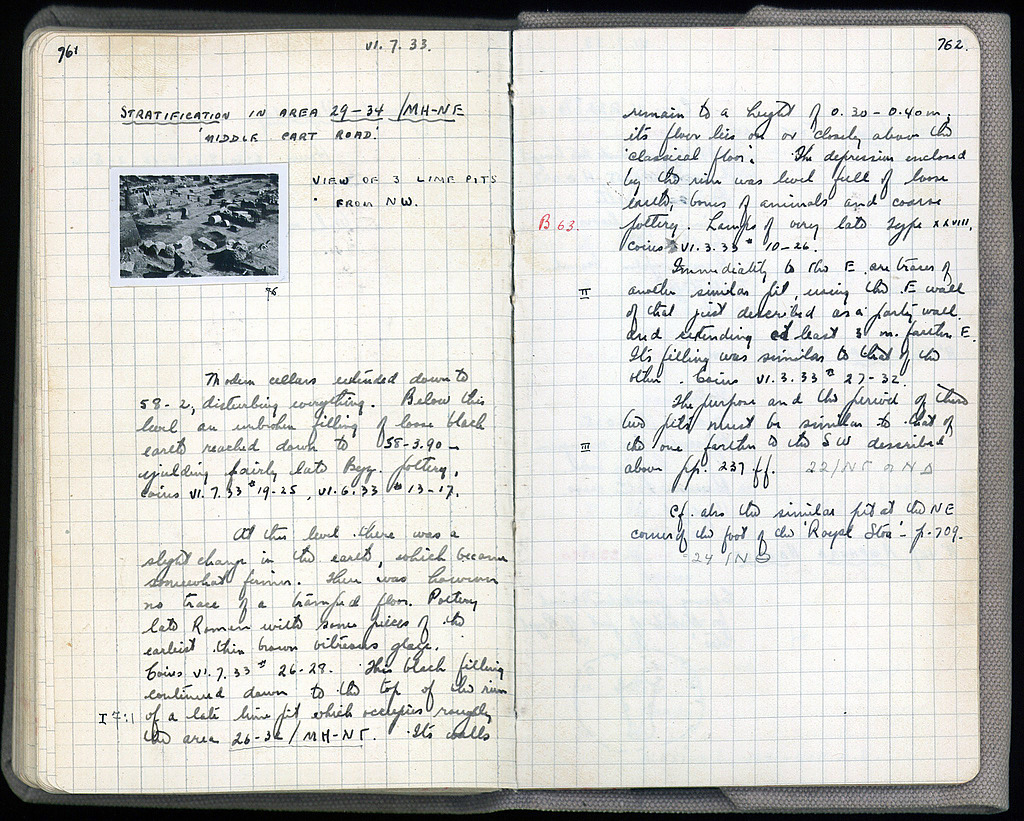 761
VI. 7. 33.
STRATIFICATION IN AREA 29-34 /MH-NE
'MIDDLE CART ROAD'.
VIEW OF 3 LIME PITS
FROM NW.
76
Modern cellars extended down to
58-2, disturbing everything. Below this
level an unbroken filling of loose black
earth reached down to 58-3.90 -
yielding fairly late Byz. pottery,
coins VI.7.33 # 19-25, VI.6.33 # 13-17.
At this level there was a
slight change in the earth, which became
somewhat firmer. There was however
no trace of a tramped floor. Pottery
late Roman with some pieces of the
earliest thin brown vitreous glaze.
Coins VI.7.33 # 26-29. This black filling
continued down to the top of the rim
I of a late lime pit which occupies roughly
the area 26-32/MH-NE. Its walls
762.
remain to a height of 0.30-0.40m;
its floor lies on or closely above the
'classical floor'. The depression enclosed
by the rim was level full of loose
earth, bones of animals and coarse
B 63. pottery. Lamps of very late type XXVIII,
coins VI.3.33 # 10-26.
Immediately to the E. are traces of
II another similar pit, using the E wall
of that just described as a party wall
and extending at least 3 m. farther E.
Its filling was similar to that of the
other. Coins VI.3.33 # 27-32.
The purpose and the period of these
two pits must be similar to that of
III the one farther to the SW described
above pp. 237 ff. 22/
Cf. also the similar pit at the NE
corner of the foot of the 'Royal Stoa' - p. 709.
24 /